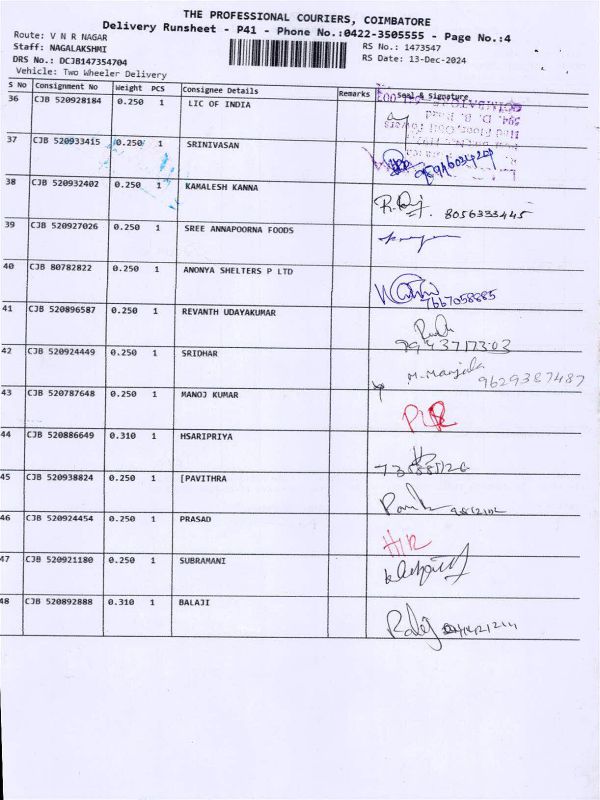 THE PROFESSIONAL COURIERS, COIMBATORE
Delivery Runsheet - P41 - Phone No.:0422-3505555 - Page No.:4
Route: V N R NAGAR
Staff: NAGALAKSHMI
RS No.: 1473547
DRS No.: DCJB147354704
RS Date: 13-Dec-2024
Vehicle: Two Wheeler Delivery
S No Consignment No Weight PCS Consignee Details Remarks Seal & Signature
36 CJB 520928184 0.250 1 LIC OF INDIA
37 CJB 520933415 0.250 1 SRINIVASAN
38 CJB 520932402 0.250 1 KAMALESH KANNA 8056333445
39 CJB 520927026 0.250 1 SREE ANNAPOORNA FOODS
40 CJB 80782822 0.250 1 ANONYA SHELTERS P LTD 7667058885
41 CJB 520896587 0.250 1 REVANTH UDAYAKUMAR
42 CJB 520924449 0.250 1 SRIDHAR M. Manjula 9629387487
43 CJB 520787648 0.250 1 MANOJ KUMAR
44 CJB 520886649 0.310 1 HSARIPRIYA
45 CJB 520938824 0.250 1 [PAVITHRA
46 CJB 520924454 0.250 1 PRASAD
47 CJB 520921180 0.250 1 SUBRAMANI
48 CJB 520892888 0.310 1 BALAJI